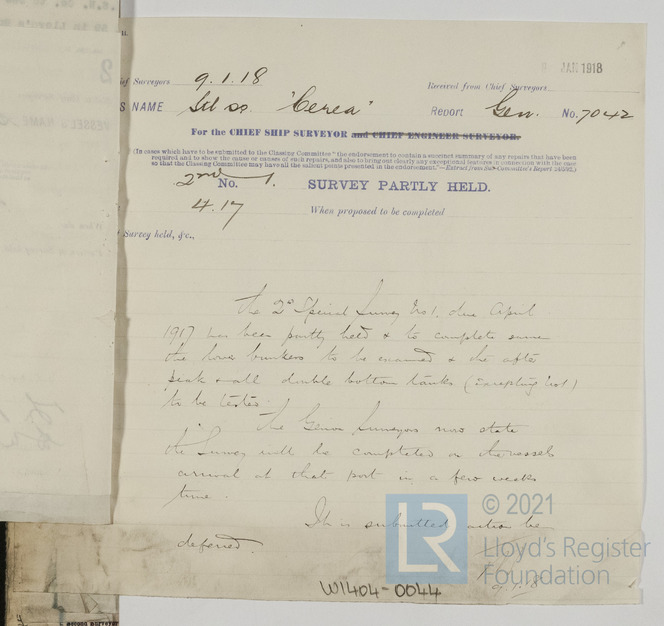 9 JAN 1918
ief Surveyors 9.1.18 Received from Chief Surveyors
S NAME Stl ss. "Cerea" Report Gen. No. 7042
For the CHIEF SHIP SURVEYOR and CHIEF ENGINEER SURVEYOR.
(In cases which have to be submitted to the Classing Committee "the endorsement to contain a succinct summary of any repairs that have been
required and to show the cause or causes of such repairs, and also to bring out clearly any exceptional features in connection with the case
so that the Classing Committee may have all the salient points presented in the endorsement."—Extract from Sub-Committee's Report
2nd No. 1. SURVEY PARTLY HELD.
4.17 When proposed to be completed
Survey held, &c.,
The 2d Special Survey No1, due April
1917 has been partly held & to complete same
the lower bunkers to be examined & the after
peak & all double bottom tanks (excepting No1)
to be tested.
The Genoa Surveyors now state
the Survey will be completed on the vessels
arrival at that port in a few weeks
time.
It is submitted action be
deferred.
9.1.8
W1404-0044
LR
© 2021
Lloyd's Register
Foundation